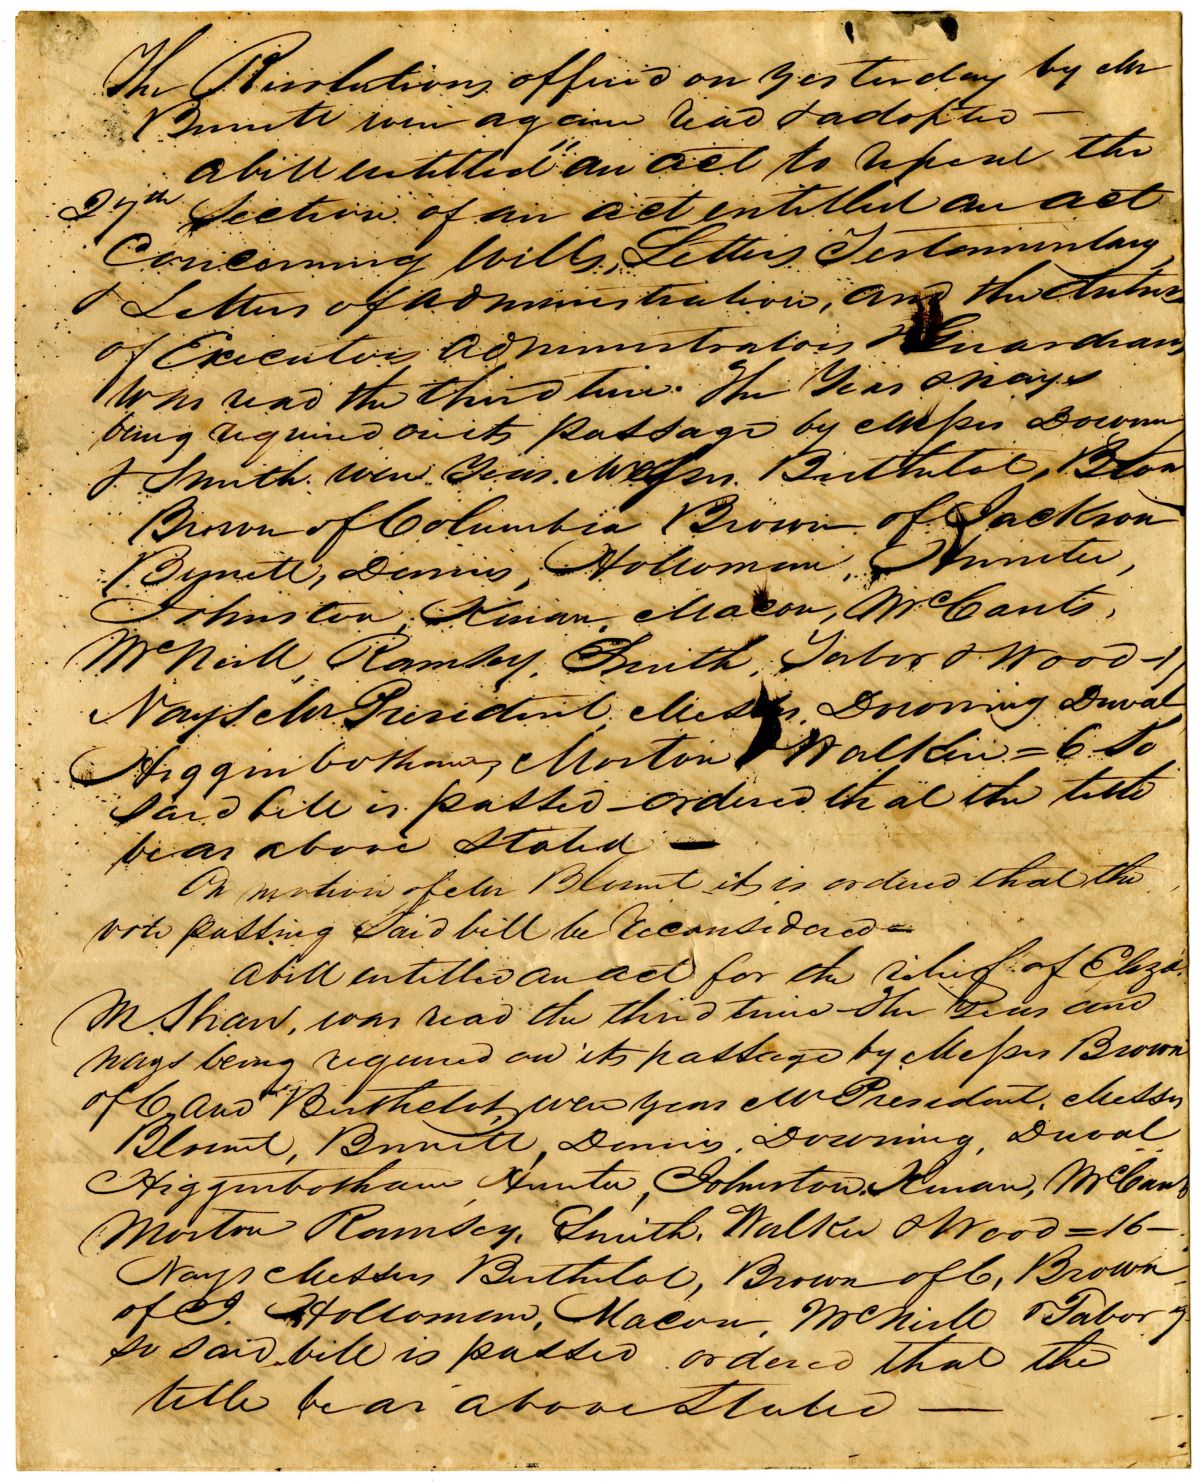 The Resolutions offered on yesterday by Mr
Burritt were again read & adopted —
a bill entitled "an act to repeal the
27th Section of an act entitled an act
Concerning Wills, Letters Testamentary,
& Letters of administration, and the duties
of Executors administrators & Guardians
was read the third time. The Yeas & nays
being required on its passage by Messrs Downing
& Smith were Yeas. Messrs. Berthelot,
Brown of Columbia Brown of Jackson
Burritt, Dennis, Holloman, Hunter,
Johnston, Kenan, Macon, McCants,
McNeill, Ramsey, Smith, Tabor & Wood —
Nays Mr President, Messrs, Downing Duval
Higginbotham, Morton & Walker = 6 So
said bill is passed — ordered that the title
be as above stated —
On motion of Mr Blount it is ordered that the
vote passing Said bill be reconsidered =
a bill entitled an act for the relief of Eliza.
M. Shaw, was read the third time — the Yeas and
nays being required on its passage by Messrs Brown
of C, and Berthelot, were yeas Mr President, Messrs
Blount, Burritt, Dennis, Downing, Duval
Higginbotham, Hunter, Johnston, Kenan, McCants
Morton Ramsey, Smith, Walker & Wood = 16 —
Nays Messrs Berthelot, Brown of C, Brown
of J. Holloman, Macon, McNeill & Tabor 7
so said bill is passed ordered that the
title be as above stated —